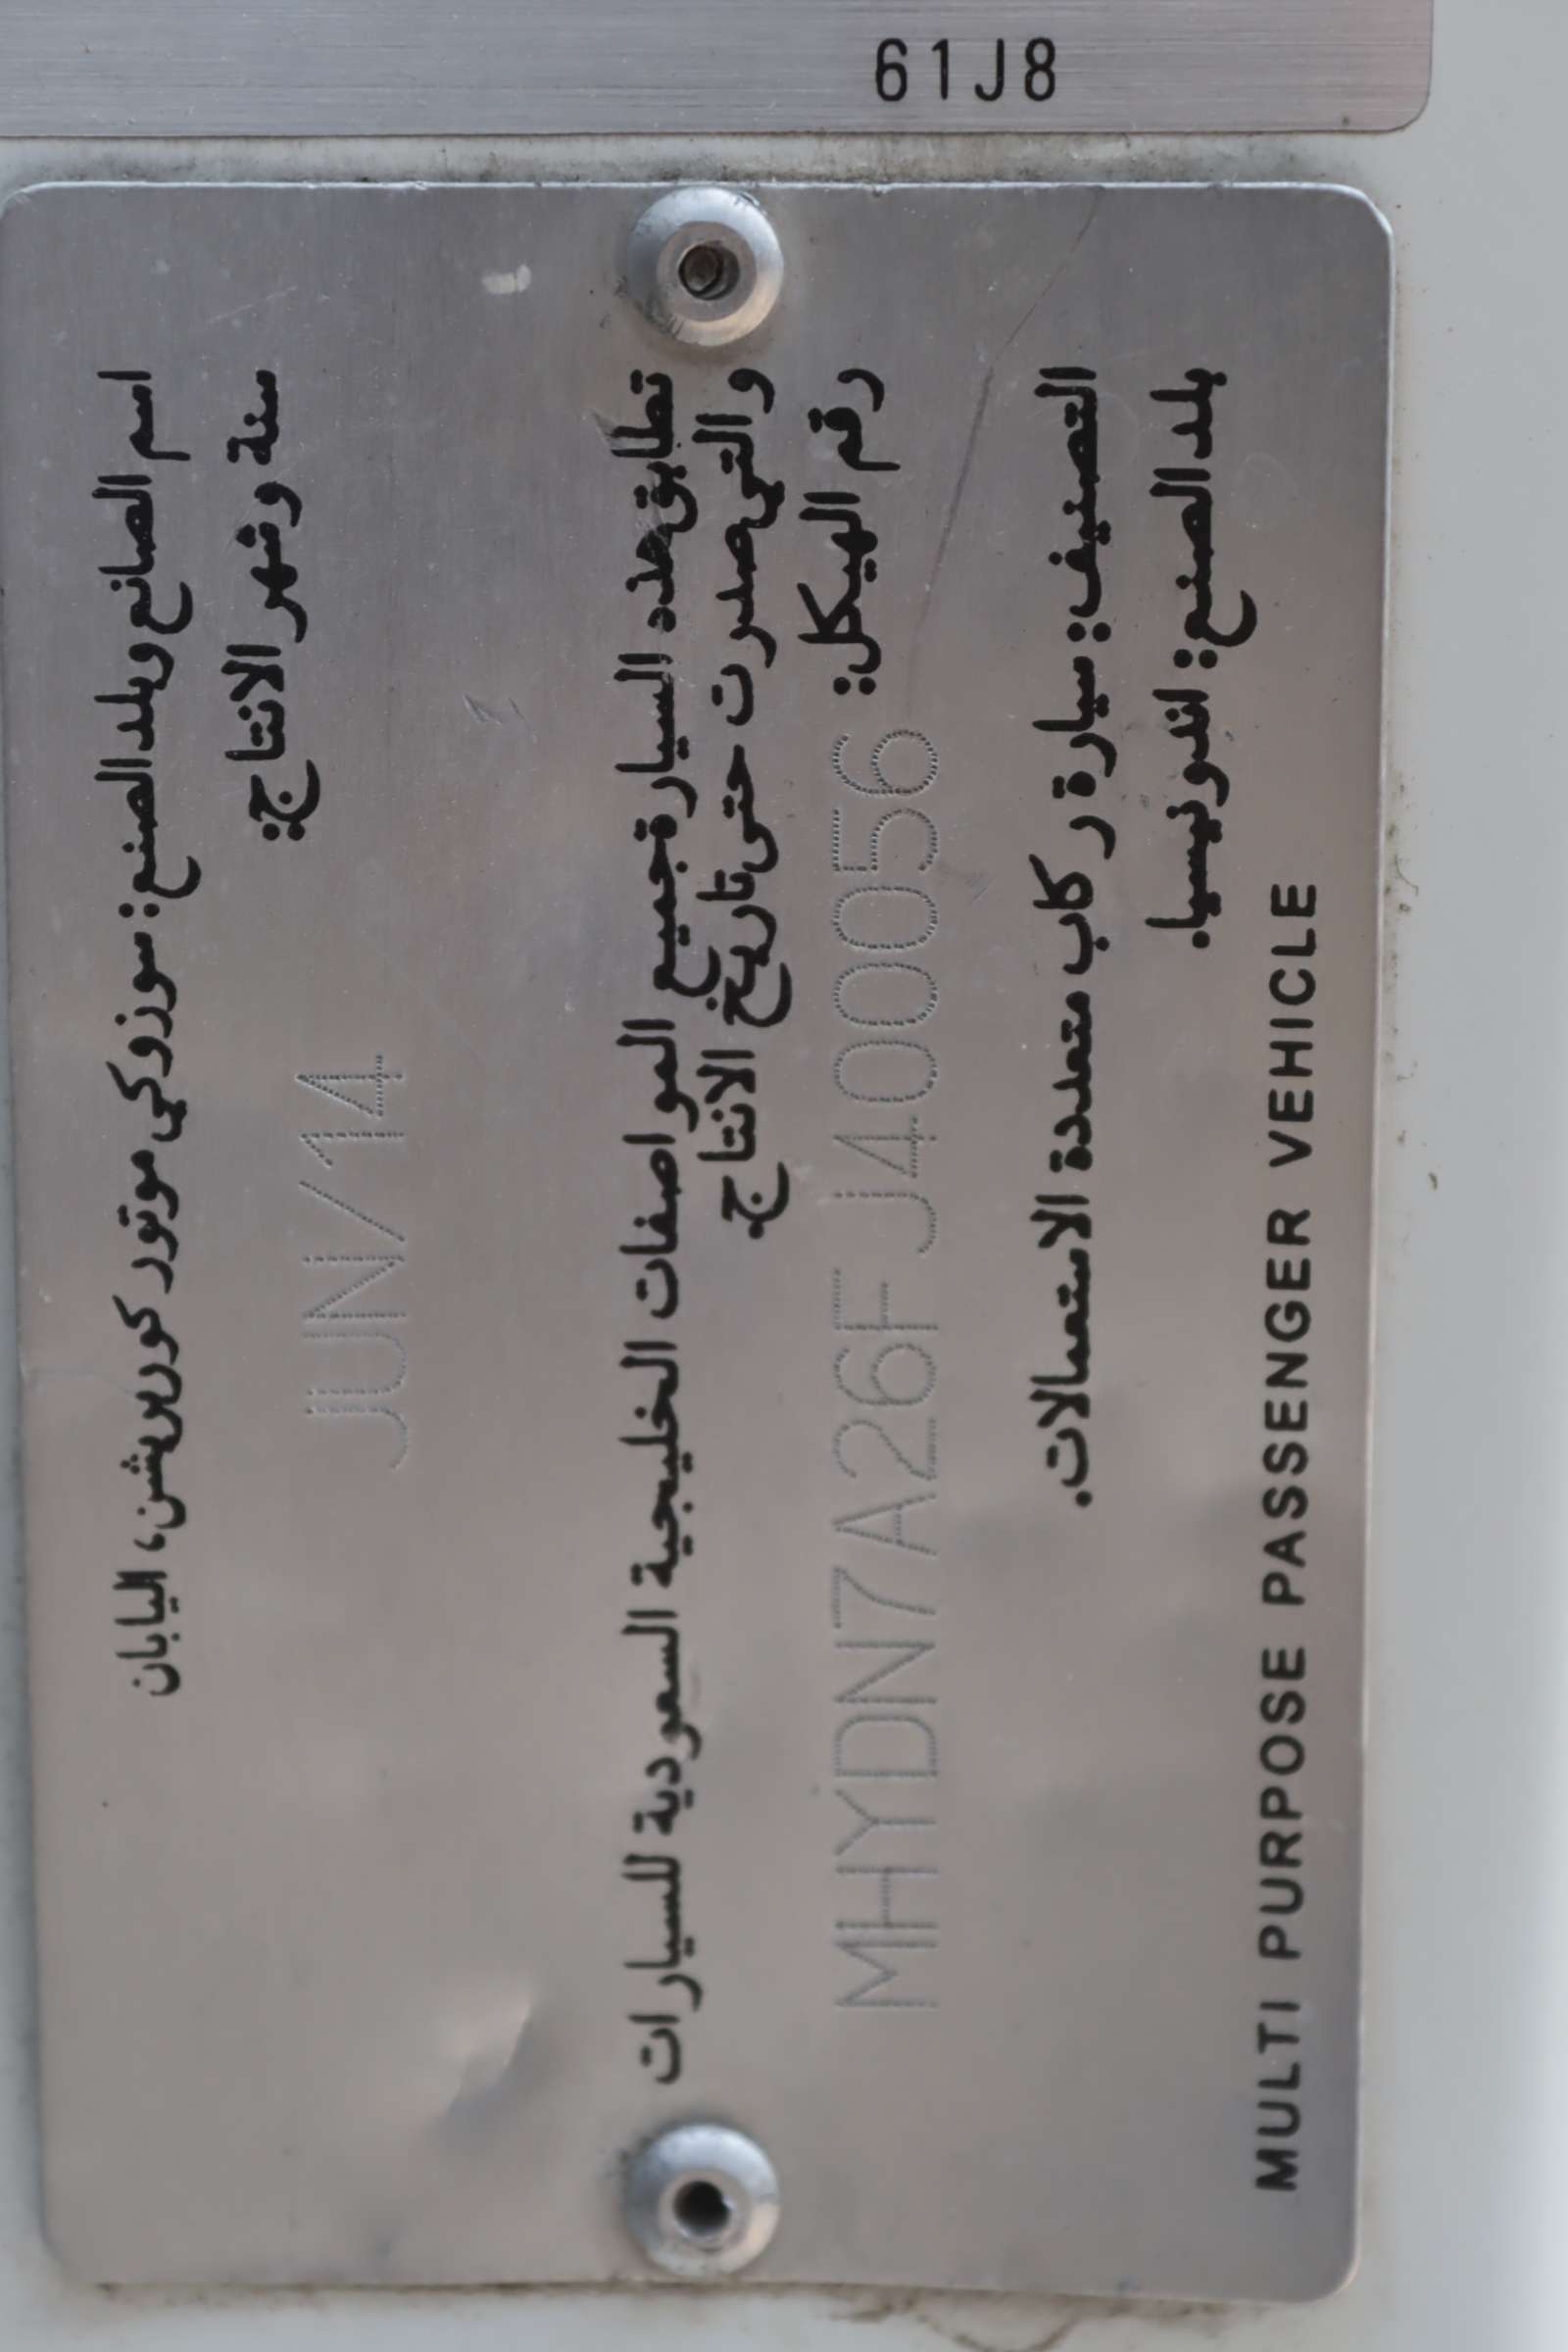 61J8
اسم الصانع وبلد الصنع: سوزوكي موتور كوربريشن، اليابان
سنة وشهر الانتاج:
JUN/14
تطابق هذه السيارة جميع المواصفات الخليجية السعودية للسيارات
والتي صدرت حتى تاريخ الانتاج.
رقم الهيكل: MHYDN7A26FJ400056
التصنيف: سيارة ركاب متعددة الاستعمالات.
بلد الصنع: اندونيسيا.
MULTI PURPOSE PASSENGER VEHICLE